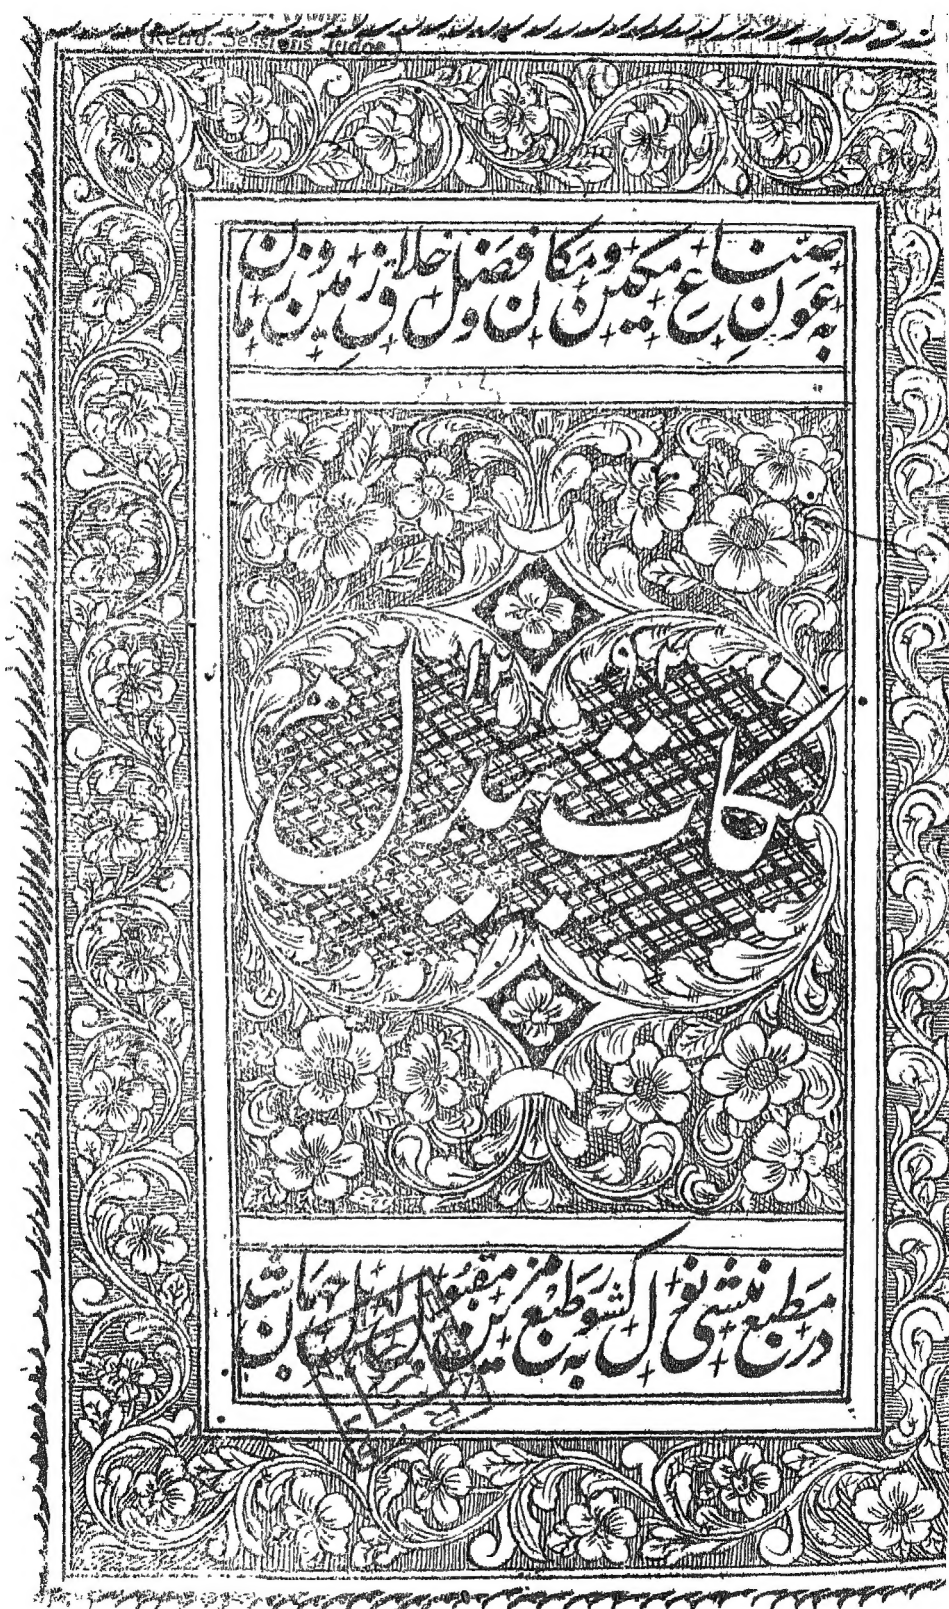 (Retd. Sessions Judge)
PRESENTED
به عون صناع مکین و مکان و فضل خلاق زمین و زمان
۱۲۹۲
نکات بیدل
در مطبع منشی نولکشور به طبع مزین مقبول جهان شد